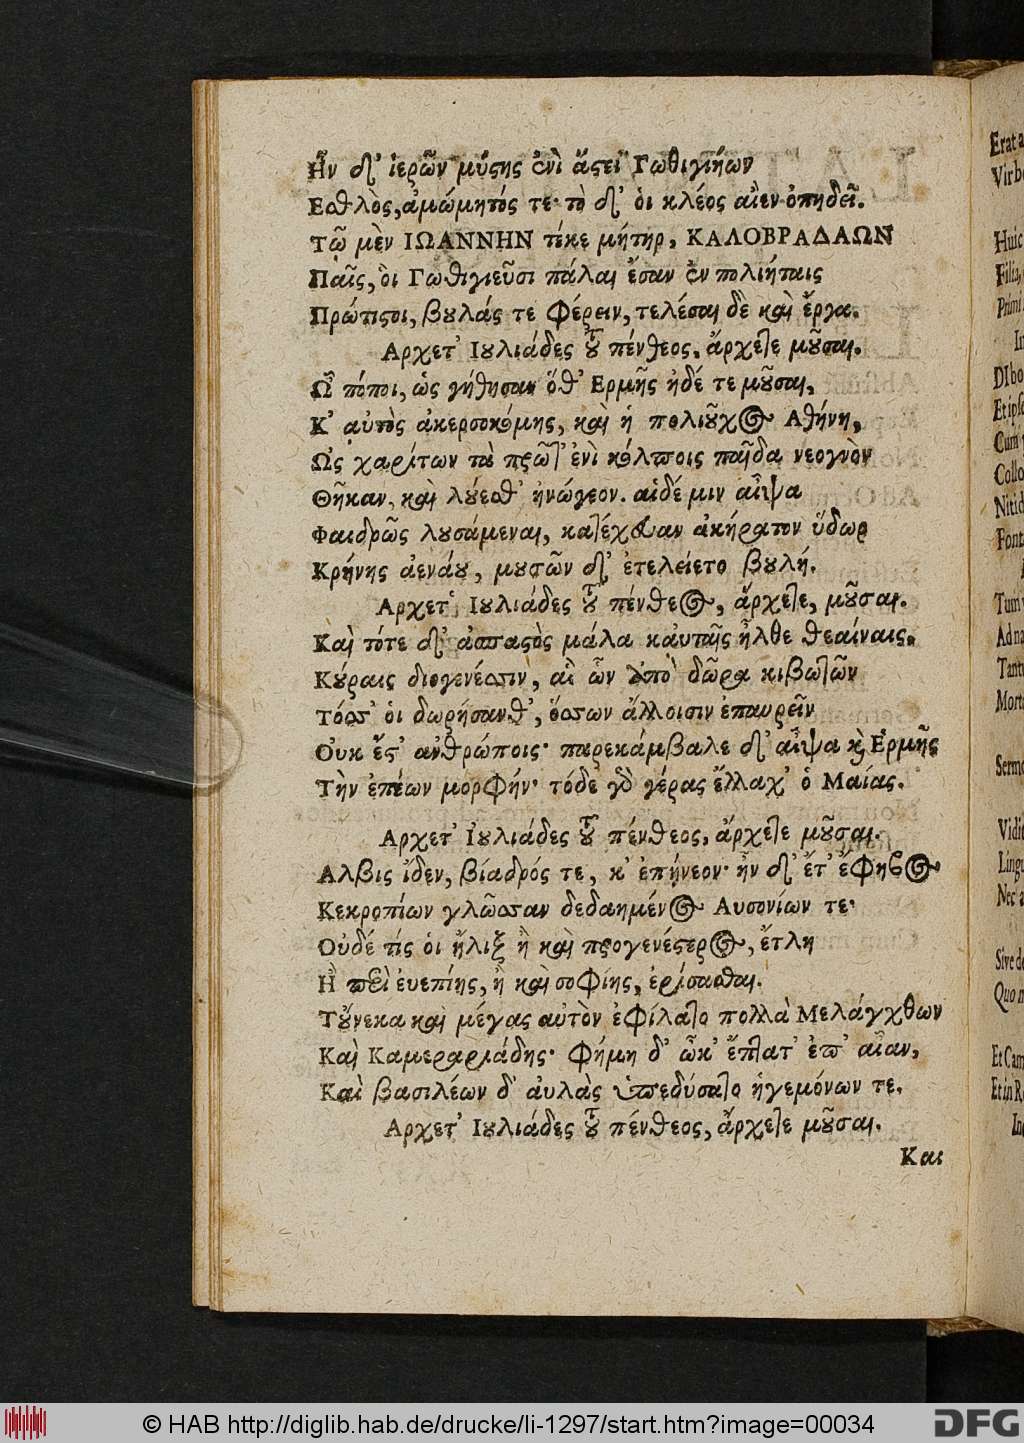 Ἦν δ' ἱερῶν μύστης ἐνὶ ἄστεϊ Γωθιγιήων
Ἐσθλὸς, ἀμώμητός τε· τὸ δ' ὁι κλέος αἶεν ὀπηδεῖ.
Τῷ μὲν ΙΩΑΝΝΗΝ τέκε μήτηρ, ΚΑΛΟΒΡΑΔΑΩΝ
Παῖς, ὃι Γωθιγιεῦσι πάλαι ἔσαν ἐν πολιήταις
Πρώτιστοι, βουλάς τε φέρειν, τελέσαι δὲ καὶ ἔργα.
Αρχετ' Ιουλιάδες τοῦ πένθεος, ἄρχετε μοῦσαι.
Ὢ πόποι, ὡς γήθησαν ὅθ' Ερμῆς ἠδέ τε μοῦσαι,
Κ' αὐτὸς ἀκερσοκόμης, καὶ ἡ πολιοῦχος Αθήνη,
Ὡς χαρίτων τὰ πρῶτ' ἐνὶ κόλποις παῖδα νεογνὸν
Θῆκαν, καὶ λούεσθ' ἠνώγεον. αἱδέ μιν αἶψα
Φαιδρῶς λουσάμεναι, κατέχευαν ἀκήρατον ὕδωρ
Κρήνης ἀενάου, μουσῶν δ' ἐτελείετο βουλή.
Αρχετ' Ιουλιάδες τοῦ πένθεος, ἄρχετε, μοῦσαι.
Καὶ τότε δ' ἀσπαστὸς μάλα κἀυταῖς ἦλθε θεαίναις,
Κούραις διογενέσσιν, αἳ ὧν ἀπὸ δῶρα κιβωτῶν
Τόσσ' ὁι δωρήσανθ', ὅσσων ἄλλοισιν ἐπαυρεῖν
Οὐκ ἔστ' ανθρώποις· παρεκάμβαλε δ' αἶψα καὶ Ἑρμῆς
Τὴν ἐπέων μορφήν· τόδε γὰρ γέρας ἔλλαχ' ὁ Μαίας.
Αρχετ' Ιουλιάδες τοῦ πένθεος, ἄρχετε μοῦσαι.
Αλβις ἴδεν, βίαδρός τε, κ' ἐπήνεον· ἦν δ' ἔτ' ἔφηβος
Κεκροπίων γλῶσσαν δεδαημένος Αυσονίων τε·
Οὐδέ τίς ὁι ἥλιξ ἢ καὶ προγενέστερος, ἔτλη
Ἢ περὶ ἐυεπίης, ἢ καὶ σοφίης, ἐρίσασθαι.
Τοὔνεκα καὶ μέγας αὐτὸν ἐφίλατο πολλὰ Μελάγχθων
Καὶ Καμεραριάδης· φήμη δ' ὦκ' ἔπτατ' ἐπ' αἶαν,
Καὶ βασιλέων δ' ἀυλὰς ὑπεδύσατο ἡγεμόνων τε.
Αρχετ' Ιουλιάδες τοῦ πένθεος, ἄρχετε μοῦσαι.
Και
© HAB http://diglib.hab.de/drucke/li-1297/start.htm?image=00034
DFG